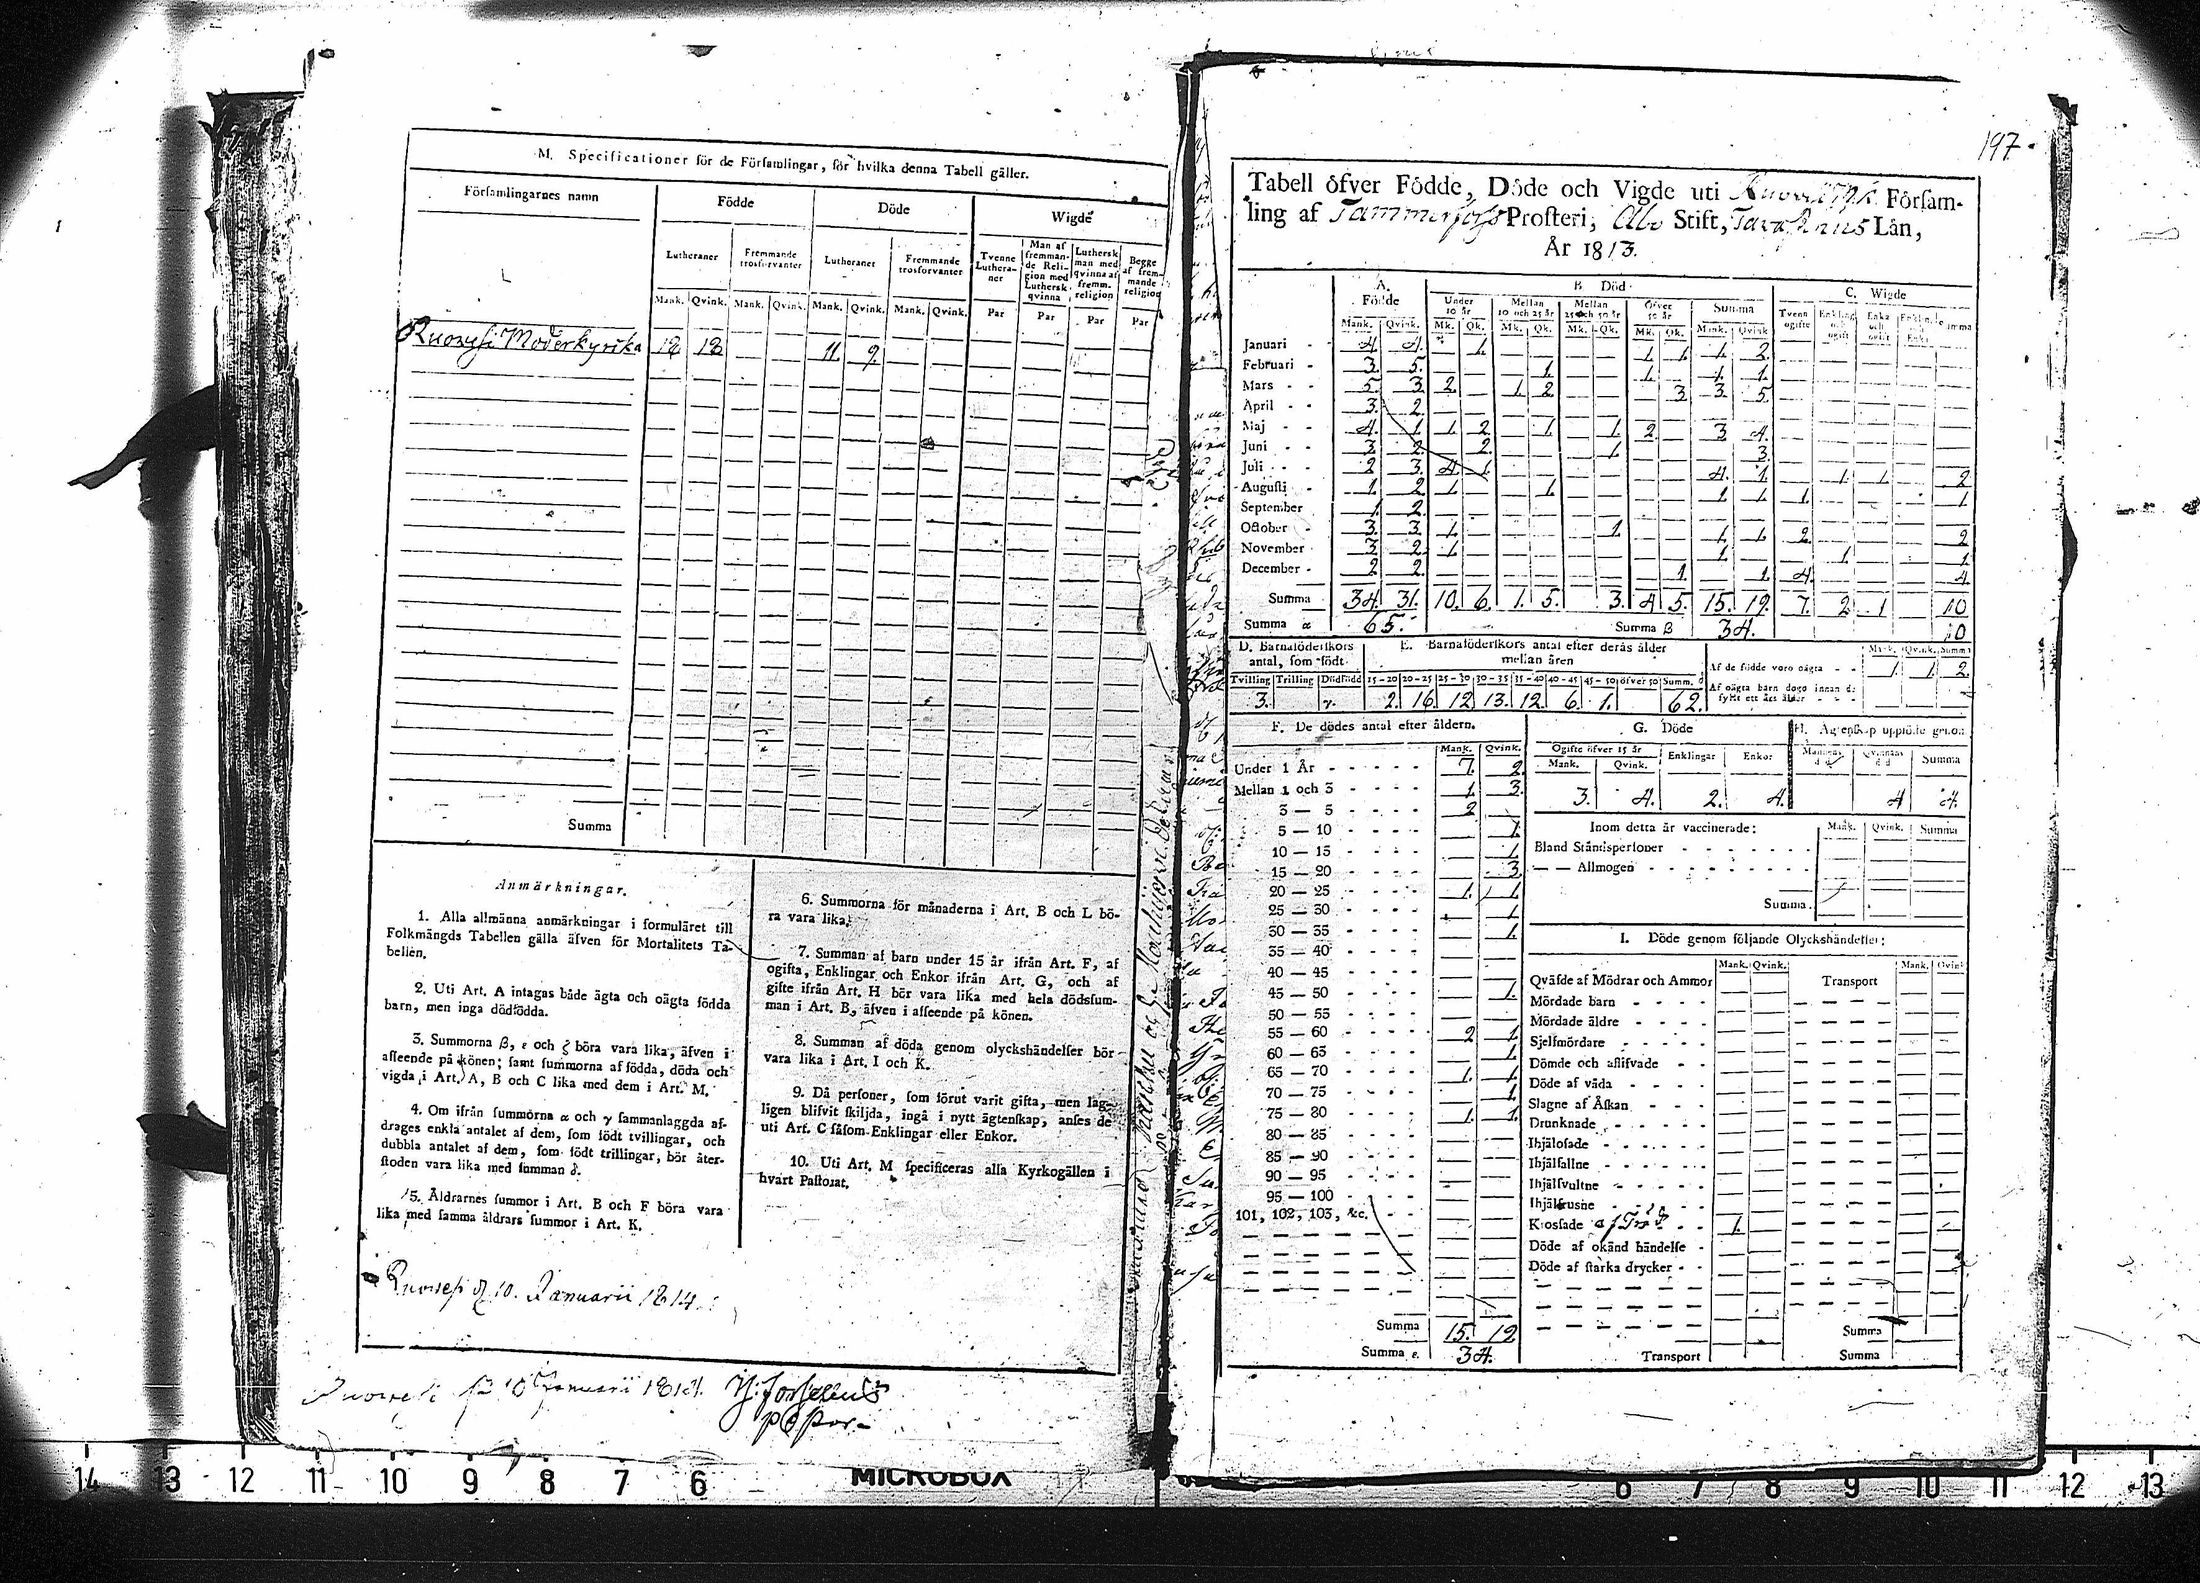 M. Specificationer för de Församlingar, för hvilka denna Tabell gäller.
Församlingarnes namn
Födde
Döde
Wigde
Lutheraner
Fremmande trosförvanter
Lutheraner
Fremmande trosförvanter
Tvenne Lutheraner
Man af fremmande Religion med Luthersk qvinna
Luthersk man med qvinna af fremm. religion
Begge af fremmande religion
Mank. Qvink. Mank. Qvink. Mank. Qvink. Mank. Qvink. Par Par Par Par
Ruovesi Moderkyrka 18 18 11. 9.
Summa
Anmärkningar.
1. Alla allmänna anmärkningar i formuläret till
Folkmängds Tabellen gälla äfven för Mortalitets Ta-
bellen.
2. Uti Art. A intagas både ägta och oägta födda
barn, men inga dödfödda.
3. Summorna β, ε och ζ böra vara lika, äfven i
affeende på könen; samt summorna af födda, döda och
vigda i Art. A, B och C lika med dem i Art. M.
4. Om ifrån summorna α och γ sammanlaggda af-
drages enkla antalet af dem, som födt tvillingar, och
dubbla antalet af dem, som födt trillingar, bör åter-
stoden vara lika med summan δ.
5. Åldrarnes summor i Art. B och F böra vara
lika med samma åldrars summor i Art. K.
6. Summorna för månaderna i Art. B och L bö-
ra vara lika.
7. Summan af barn under 15 år ifrån Art. F, af
ogifta, Enklingar och Enkor ifrån Art. G, och af
gifte ifrån Art. H bör vara lika med hela dödssum-
man i Art. B, äfven i affeende på könen.
8. Summan af döda genom olyckshändelser bör
vara lika i Art. I och K.
9. Då personer, som förut varit gifta, men lag-
ligen blifvit skiljda, ingå i nytt ägtenskap, anses de
uti Art. C såsom Enklingar eller Enkor.
10. Uti Art. M specificeras alla Kyrkogällen i
hvart Pastorat.
Ruovesi d. 10. Januarii 1814.
Ruovesi d. 10 Januarii 1814. H: Forsselius
197.
Tabell öfver Födde, Döde och Vigde uti Försam-
ling af Tammerfors Prosteri, Åbo Stift, Tavasthus Län,
År 1813.
A. Födde
B Död
C. Wigde
Under 10 år
Mellan 10 och 25 år
Mellan 25 och 50 år
Öfver 50 år
Summa
Tvenne ogifte
Mank. Qvink. Mk. Qk. Mk. Qk. Mk. Qk. Mk. Qk. Mank. Qvink.
Januari 4. 4. 1. 1. 1. 1. 2.
Februari 3. 5. 1. 1. 1. 1.
Mars 5. 3. 2. 1. 2. 3. 3. 5.
April 3. 2.
Maj 4. 1. 1. 2. 1. 1. 2. 3. 4.
Juni 3. 2. 2. 1. 3.
Juli 2. 3. 4. 1. 4. 1. 1. 1. 2
Augusti 1. 2. 1. 1. 1. 1. 1. 1.
September 1. 2.
October 3. 3. 1. 1. 1. 1. 2. 2
November 3. 2. 1. 1. 1. 1.
December 2. 2. 1. 1. 4. 4.
Summa 34. 31. 10. 6. 1. 5. 3. 4. 5. 15. 19. 7. 2 1 10
Summa α 65. Summa β 34. 10
D. Barnaföderskors
antal, som födt
E. Barnaföderskors antal efter deras ålder
mellan åren
Mank. Qvink. Summa
Tvilling Trilling Dödfödd 15-20 20-25 25-30 30-35 35-40 40-45 45-50 öfver 50 Summ. δ
Af de födde voro oägta 1. 1. 2.
Af oägta barn dogo innan de
fyllt ett års ålder
3. 2. 16. 12 13. 12. 6. 1. 62.
F. De dödes antal efter åldern.
Mank. Qvink.
Under 1 År 7. 2.
Mellan 1 och 3 1. 3.
3 — 5 2
5 — 10 1.
10 — 15 1.
15 — 20 3.
20 — 25 1. 1.
25 — 30 1.
30 — 35 1.
35 — 40
40 — 45
45 — 50 1.
50 — 55
55 — 60 2 1.
60 — 65 1.
65 — 70 1. 1.
70 — 75 1.
75 — 80 1. 1.
80 — 85
85 — 90
90 — 95
95 — 100
101, 102, 103, &c.
Summa 15. 19
Summa ε. 34.
G. Döde
Ogifte öfver 15 år
Enklingar
Enkor
Mank. Qvink.
3. 4. 2. 4.
H. Ägtenskap upplöste genom
Summa
4 4.
Inom detta år vaccinerade: Mank. Qvink. Summa
Bland Ståndspersoner
— — Allmogen
Summa
I. Döde genom följande Olyckshändelser:
Mank. Qvink. Mank. Qvink
Qväfde af Mödrar och Ammor Transport
Mördade barn
Mördade äldre
Sjelfmördare
Dömde och aflifvade
Döde af våda
Slagne af Åskan
Drunknade
Ihjälosade
Ihjälfallne
Ihjälsvultne
Ihjälfrusne
Krossade af Träd 1.
Döde af okänd händelse
Döde af starka drycker
Summa
Transport Summa
14 13 12 11 10 9 8 7 6 MICROBOX 6 7 8 9 10 11 12 13